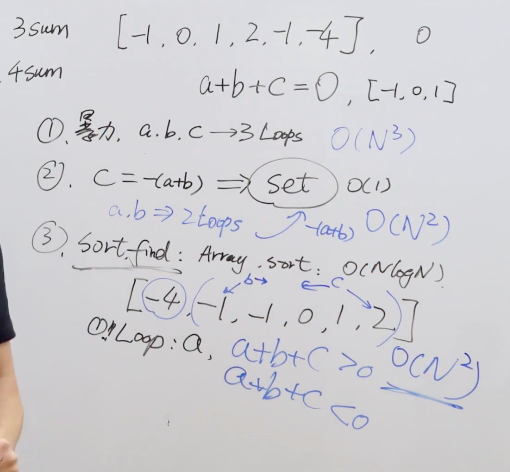 3sum [-1, 0, 1, 2, -1, -4], 0
4sum
a+b+c=0, [-1, 0, 1]
①. 暴力, a.b.c → 3 Loops O(N³)
②. C = -(a+b) ⇒ set O(1)
a.b ⇒ 2 Loops -(a+b) O(N²)
③. Sort.find: Array.sort: O(NlogN).
b→ ←c
[-4, (-1, -1, 0, 1, 2)]
①! Loop: a, a+b+c>0 O(N²)
a+b+c<0